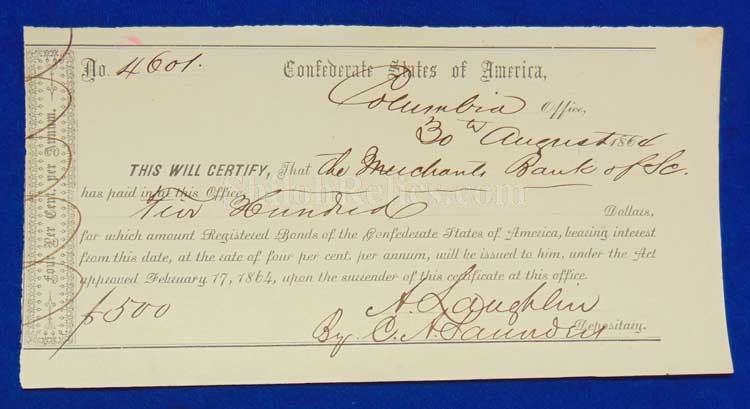 No. 4601. Confederate States of America,
Columbia Office,
30th August 1864
THIS WILL CERTIFY, That the Merchants Bank of So. Ca.
has paid in at this Office
Five Hundred Dollars,
for which amount Registered Bonds of the Confederate States of America, bearing interest
from this date, at the rate of four per cent. per annum, will be issued to him, under the Act
approved February 17, 1864, upon the surrender of this certificate at this office.
$500
A. Laughlin
By C. A. Saunders Depositary.
Four Per Cent. per Annum.